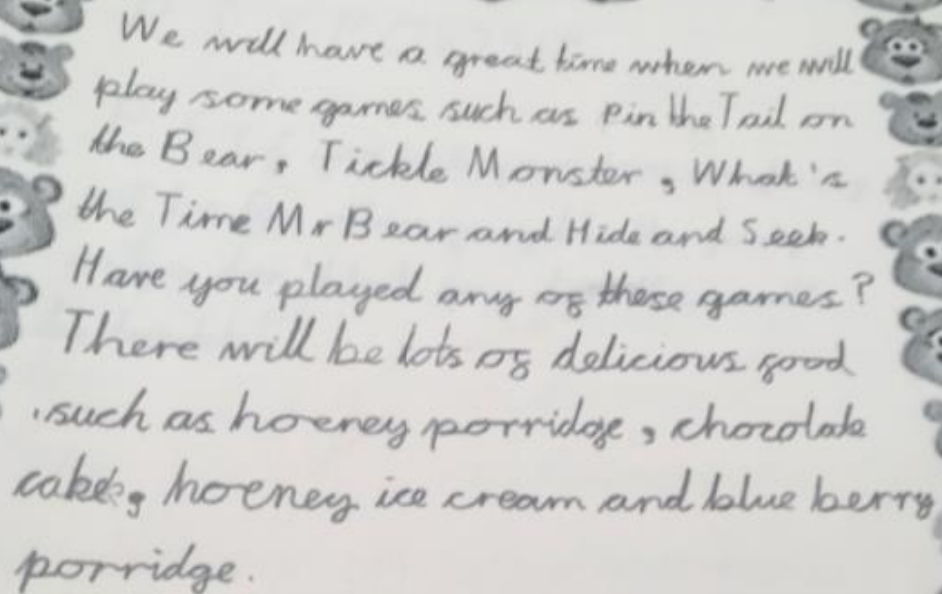 We will have a great time when we will
play some games such as Pin the Tail on
the Bear, Tickle Monster, What's
the Time Mr Bear and Hide and Seek.
Have you played any of these games?
There will be lots of delicious food
such as hoeney porridge, chocolate
cake, hoeney ice cream and blue berry
porridge.